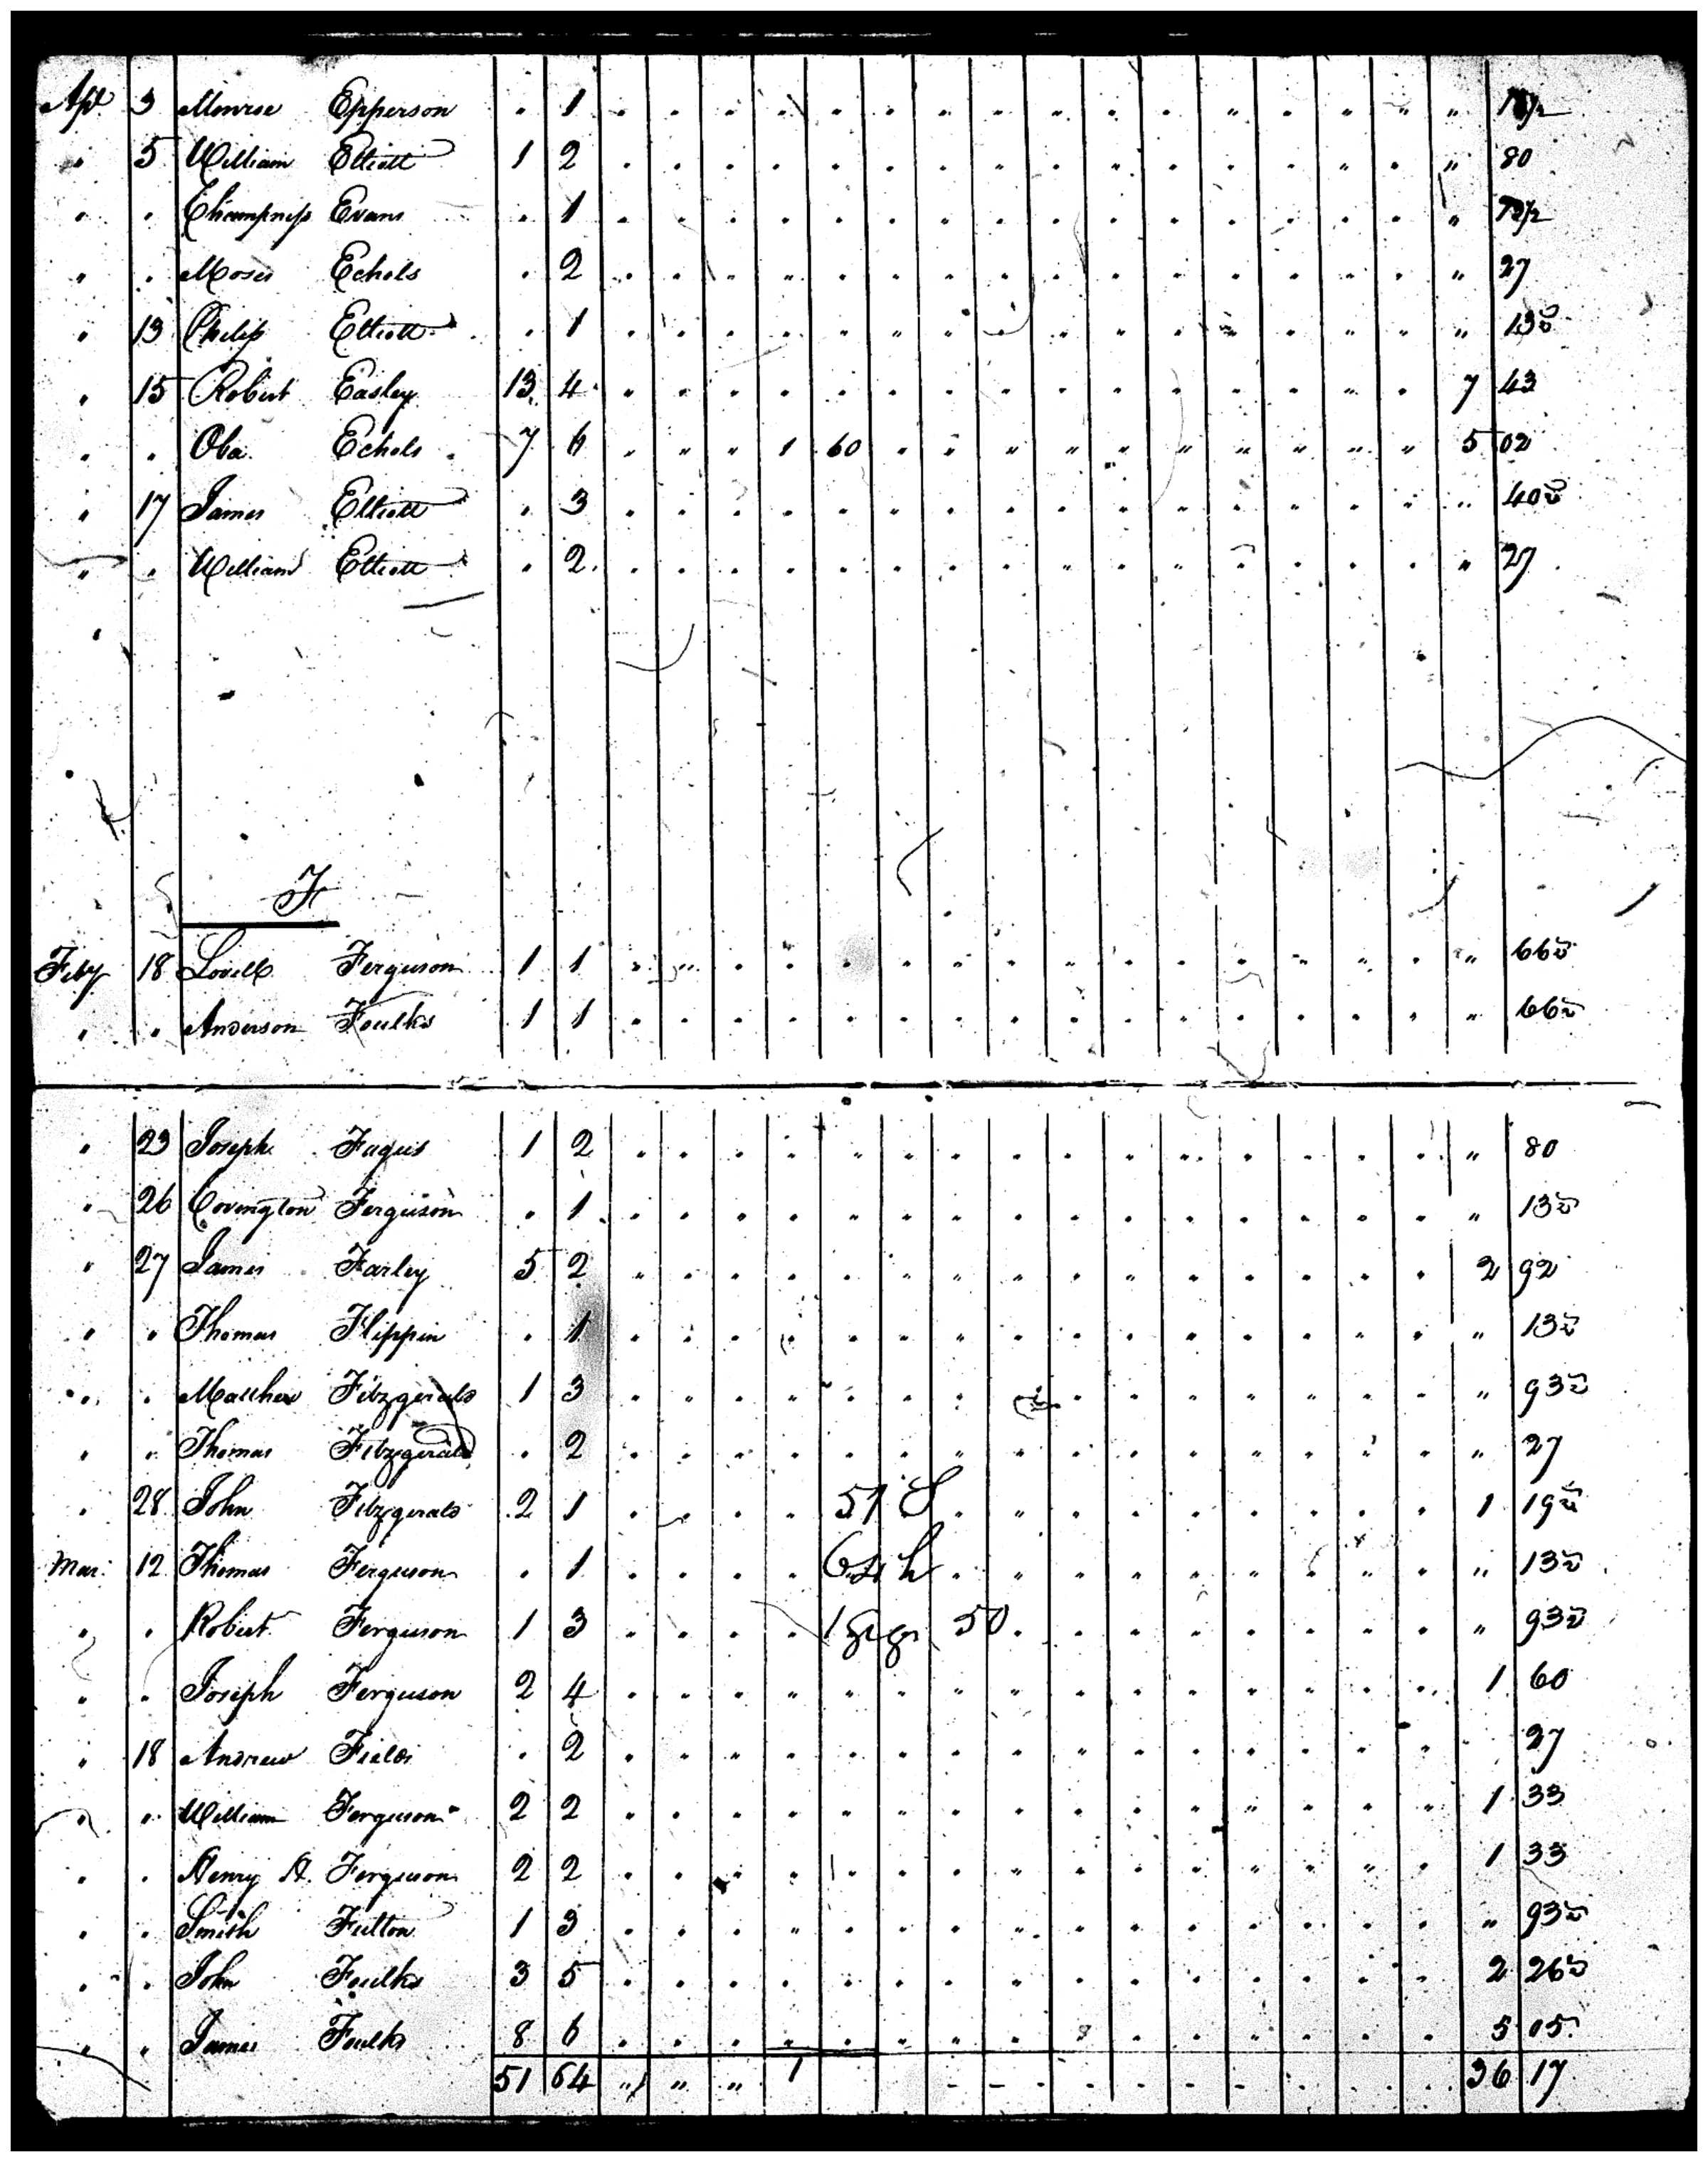 Apl 3 Monroe Epperson " 1 " " " " " " " " " " " " " " " " 13½
" 5 William Elliott 1 2 " " " " " " " " " " " " " " " " 80
" " Champness Evans " 1 " " " " " " " " " " " " " " " " 13½
" " Moses Echols " 2 " " " " " " " " " " " " " " " " 27
" 13 Philip Elliott " 1 " " " " " " " " " " " " " " " " 13½
" 15 Robert Easley 13 4 " " " " " " " " " " " " " " " 7 43
" " Oba Echols 7 6 " " " 1 60 " " " " " " " " " " 5 02
" 17 James Elliott " 3 " " " " " " " " " " " " " " " " 40½
" " William Elliott " 2 " " " " " " " " " " " " " " " " 27
F
Feby 18 Lovell Ferguson 1 1 " " " " " " " " " " " " " " " " 66½
" " Anderson Foulks 1 1 " " " " " " " " " " " " " " " " 66½
" 23 Joseph Fagus 1 2 " " " " " " " " " " " " " " " " 80
" 26 Covington Ferguson " 1 " " " " " " " " " " " " " " " " 13½
" 27 James Farley 5 2 " " " " " " " " " " " " " " " 2 92
" " Thomas Flippin " 1 " " " " " " " " " " " " " " " " 13½
" " Matthew Fitzgerald 1 3 " " " " " " " " " " " " " " " " 93½
" " Thomas Fitzgerald " 2 " " " " " " " " " " " " " " " " 27
" 28 John Fitzgerald 2 1 " " " " 51 S " " " " " " " " " 1 19½
Mar: 12 Thomas Ferguson " 1 " " " " 64 h " " " " " " " " " " 13½
" " Robert Ferguson 1 3 " " " " 1 gig 50 " " " " " " " " " 93½
" " Joseph Ferguson 2 4 " " " " " " " " " " " " " " " 1 60
" 18 Andrew Fields " 2 " " " " " " " " " " " " " " " 27
" " William Ferguson 2 2 " " " " " " " " " " " " " " " 1 33
" " Henry A. Ferguson 2 2 " " " " " " " " " " " " " " " 1 33
" " Smith Fulton 1 3 " " " " " " " " " " " " " " " " 93½
" " John Foulks 3 5 " " " " " " " " " " " " " " " 2 26½
" " James Foulks 8 6 " " " " " " " " " " " " " " " 5 05
51 64 " " " 1 " " " " " " " " " " 36 17